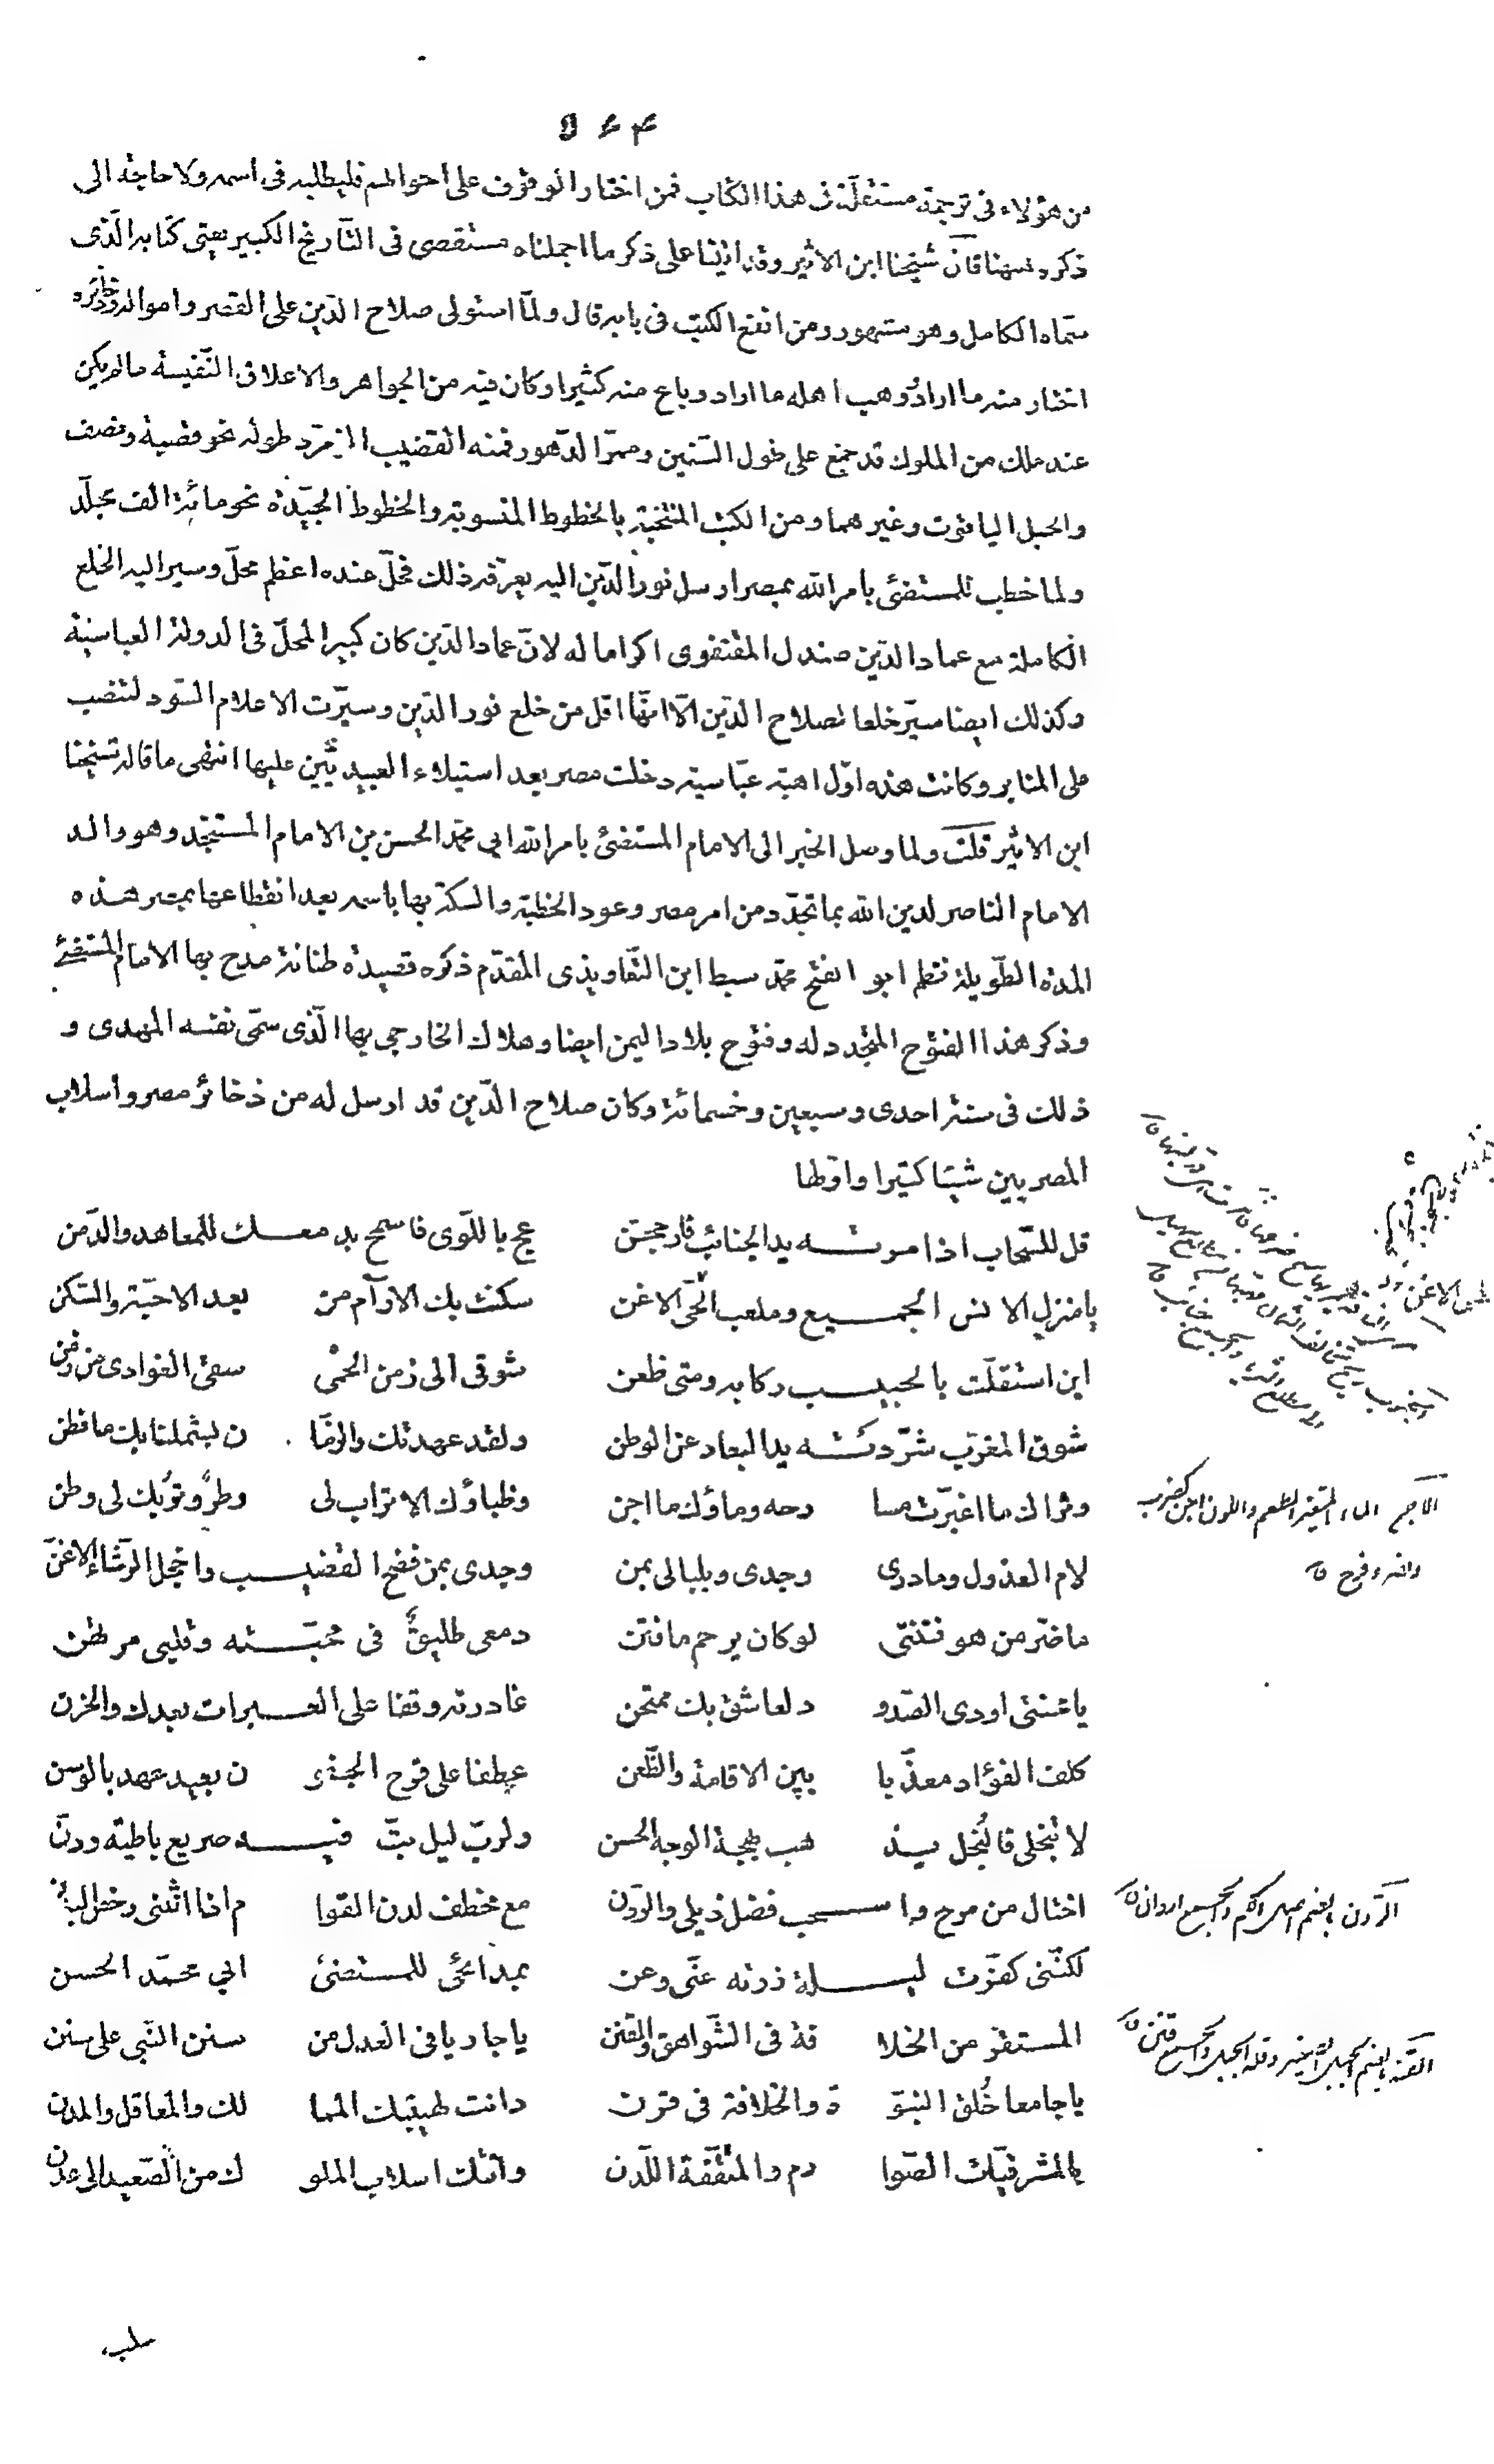 ٥٤٣
من هؤلاء فى ترجمة مستقلّة فى هذا الكتاب فمن اختار الوقوف على احوالهم فليطلبه فى اسمه ولا حاجة الى
ذكره ههنا قال شيخنا ابن الاثير وقد اتينا على ذكر ما اجملناه مستقصى فى التّاريخ الكبير يعنى كتابه الّذى
سمّاه الكامل وهو مشهور ومن انفع الكتب فى بابه قال ولمّا استولى صلاح الدّين على القصر وامواله وذخائره
اختار منه ما اراد ووهب اهله ما اراد وباع منه كثيرا وكان فيه من الجواهر والاعلاق النّفيسة ما لم يكن
عند ملك من الملوك قد جمع على طول السّنين وممرّ الدّهور فمنه القضيب الزمرّد طوله نحو قصبة ونصف
والحبل الياقوت وغيرهما ومن الكتب المنتخبة بالخطوط المنسوبة والخطوط الجيّدة نحو مائة الف مجلّد
ولما خطب للمستضئ بامر الله بمصر ارسل نور الدّين اليه يعرّفه ذلك فحلّ عنده اعظم محلّ وسير اليه الخلع
الكاملة مع عماد الدّين صندل المقتفوى اكراما له لانّ عماد الدّين كان كبير المحلّ فى الدولة العباسية
وكذلك ايضا سيّر خلعا لصلاح الدّين الّا انّها اقل من خلع نور الدّين وسيّرت الاعلام السّود لتنصب
على المنابر وكانت هذه اوّل اهبة عبّاسية دخلت مصر بعد استيلاء العبيديّين عليها انتهى ما قاله شيخنا
ابن الاثير قلت ولما وصل الخبر الى الامام المستضئ بامر الله ابى محمّد الحسن بن الامام المستنجد وهو والد
الامام الناصر لدين الله بما تجدّد من امر مصر وعود الخطبة والسكّة بها باسمه بعد انقطاعها بمصر هذه
المدة الطّويلة نظم ابو الفتح محمّد سبط ابن التّعاويذى المقدّم ذكره قصيدة طنانة مدح بها الامام المستضئ
وذكر هذا الفتوح المتجدد له وفتوح بلاد اليمن ايضا وهلاك الخارجى بها الّذى سمّى نفسه المهدى و
ذلك فى سنة احدى وسبعين وخسمائة وكان صلاح الدّين قد ارسل له من ذخائر مصر واسلاب
المصريين شيئا كثيرا واوّلها
قل للسّحاب اذا مرته يد الجنائب فارجحنّ عج باللّوى فاسمح بدمعك للمعاهد والدّمن
يا منزل الانس الجميع وملعب الحىّ الاغن سكنت بك الارآم من بعد الاحبّة والسّكن
اين استقلّت بالحبيب ركابه ومتى ظعن شوقى الى زمن الحمٰى سقى الغوادى من زمن
شوق المغرّب شرّدته يد البعاد عن الوطن ولقد عهدتك والزمّا ن لشملنا بك ما فطن
وثراك ما اغبرّت مسا رحه وماؤك ما اجن وظباؤك الاتراب لى وطرٌ وتربك لى وطن
لام العذول وما درى وجدى وبلبالى بمن وجدى بمن فضح القضيب واخجل الرّشاء الاغنّ
ما ضرّ من هو فتنتى لو كان يرحم ما فتن دمعى طليقٌ فى محبّته وقلبى مرتهن
يا عنتى اودى الصّدو د لعاشق بك ممتحن غادرته وقفا على العبرات بعدك والحزن
كلف الفؤاد معذّبا بين الاقامة والظّعن عطفا على قرح الجفو ن بعيد عهد بالوسن
لا تبخلى فالبُخل يذ هب بهجة الوجه الحسن ولربّ ليل بتّ فيه صريع باطية ودنّ
اختال من مرح واسحب فضل ذيلى والرّدن مع مخطف لدن القوا م اذا انثنى رخص البدن
لكنّنى كفّرت ليلة زرته عنّى وعن بمدائحى للمستضئ ابى محمّد الحسن
المستقرّ من الخلا فة فى الشّواهق والقنن يا جاريا فى العدل من سنن النّبى على سنن
يا جامعا خُلق النبوّ ة والخلافة فى قرن دانت لهيبتك المما لك والمعاقل والمدن
بالمشرفيّات الصّوا رم والمثقّفة اللّدن واتتك اسلاب الملو ك من الصّعيد الى عدن
الآجن الماء المتغيّر الطعم واللون اجن كضرب
ونصر وفرح
الرّدن بالضم اصل الكم والجمع اردان
القنة بالضم الجبل الصغير وقلة الجبل والجمع قنن
سلب